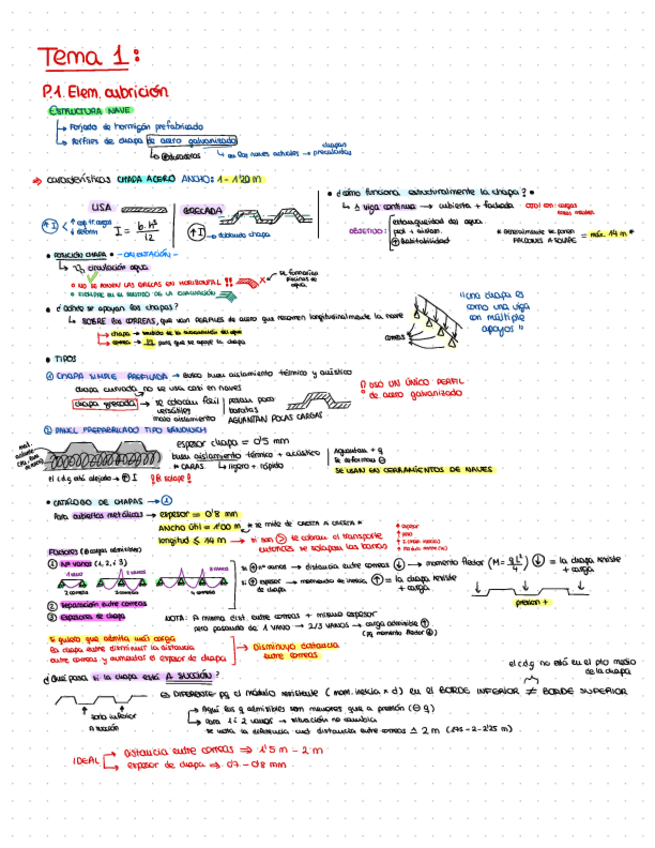 Tema 1:
P.1. Elem. cubrición
ESTRUCTURA NAVE
Forjado de hormigón prefabricado
Perfiles de chapa de acero galvanizado
+ duraderos
en las naves actuales → prelacadas
características CHAPA ACERO ANCHO: 1 - 1'20 m
LISA
GRECADA
I = b·h³ / 12
↑I → doblando chapa
• ¿cómo funciona estructuralmente la chapa? •
viga continua → cubierta + fachada
OBJETIVO:
estanqueidad del agua
prot + aislam.
↑ habitabilidad
* generalmente se ponen
FALDONES A 2 AGUAS = máx. 14 m *
• POSICIÓN CHAPA • - ORIENTACIÓN -
circulación agua
• NO SE PONEN LAS GRECAS EN HORIZONTAL !!
X
se formarían
piscinas de
agua
• SIEMPRE EN EL SENTIDO DE LA EVACUACIÓN
• ¿dónde se apoyan las chapas?
SOBRE las CORREAS, que van PERFILES de acero que recorren longitudinalmente la nave
chapa → sentido de la evacuación del agua
correa → para que se apoye la chapa
correas
"una chapa es
como una viga
con múltiple
apoyos"
• TIPOS
CHAPA SIMPLE PERFILADA → busca buen aislamiento térmico y acústico
chapa curvada, no se usa casi en naves
chapa grecada → se colocan fácil
versátiles
malo aislamiento
pesan poco
baratas
AGUANTAN POCAS CARGAS
USO UN ÚNICO PERFIL
de acero galvanizado
PANEL PREFABRICADO TIPO SANDWICH
espesor chapa = 0'5 mm
buen aislamiento térmico + acústico
* CARAS
ligero + rápido
Aguantan + q
se deforman
SE USAN EN CERRAMIENTOS DE NAVES
el c.d.g está alejado → ↑ I
solape!
• CATÁLOGO DE CHAPAS → ①
Para cubiertas metálicas → espesor = 0'8 mm
ANCHO útil = 1'00 m * se mide de CRESTA A CRESTA *
longitud ≤ 14 m → si son > se cobran el transporte
entonces se solapan las barras
↑ espesor
↑ peso
Factores (q cargas admisibles)
① Nº vanos (1, 2, ó 3)
1 vano
2 vanos
3 vanos
2 correas
3 correas
4 correas
② Separación entre correas
③ Espesores de chapa
si ↑ nº vanos → distancia entre correas ↓ → momento flector (M = qL²/4) ↓ = la chapa resiste
+ carga
si ↑ espesor → momento de inercia, ↑ = la chapa resiste
de chapa
+ carga
presión +
NOTA: A misma dist. entre correas + mismo espesor
pero pasando de 1 VANO → 2/3 VANOS → carga admisible ↑
(pq momento flector ↓)
Si quiero que admita más carga
la chapa entre disminuir la distancia
entre correas y aumentar el espesor de chapa
→ Disminuyo distancia
entre correas
el c.d.g no está en el pto medio
de la chapa
¿Qué pasa si la chapa está A SUCCIÓN?
zona inferior
A succión
es DIFERENTE pq el módulo resistente (mom. inercia × d) en el BORDE INFERIOR ≠ BORDE SUPERIOR
Aquí las q admisibles son menores que a presión (⊖ q)
para 1 ó 2 vanos → situación no cambia
se nota la diferencia cuando distancia entre correas 2 m (1'75 - 2 - 2'25 m)
IDEAL
Distancia entre correas ⇒ 1'5 m - 2 m
espesor de chapa ⇒ 0'7 - 0'8 mm